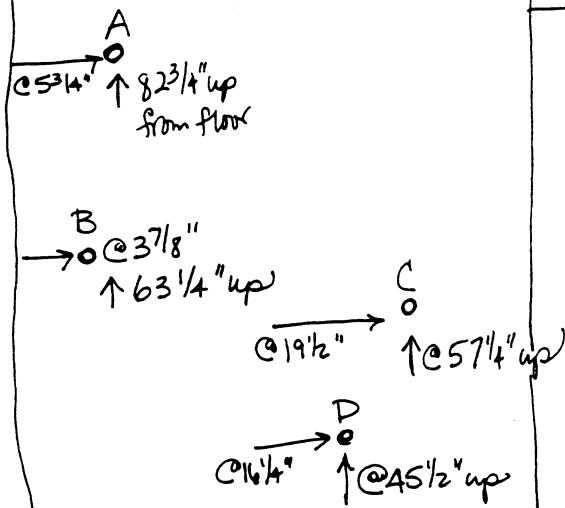 A
@5 3/4"
↑ 82 3/4" up
from floor
B
@ 3 7/8"
↑ 63 1/4" up
C
@19 1/2"
↑@57 1/4" up
D
@16 1/4"
↑@45 1/2" up